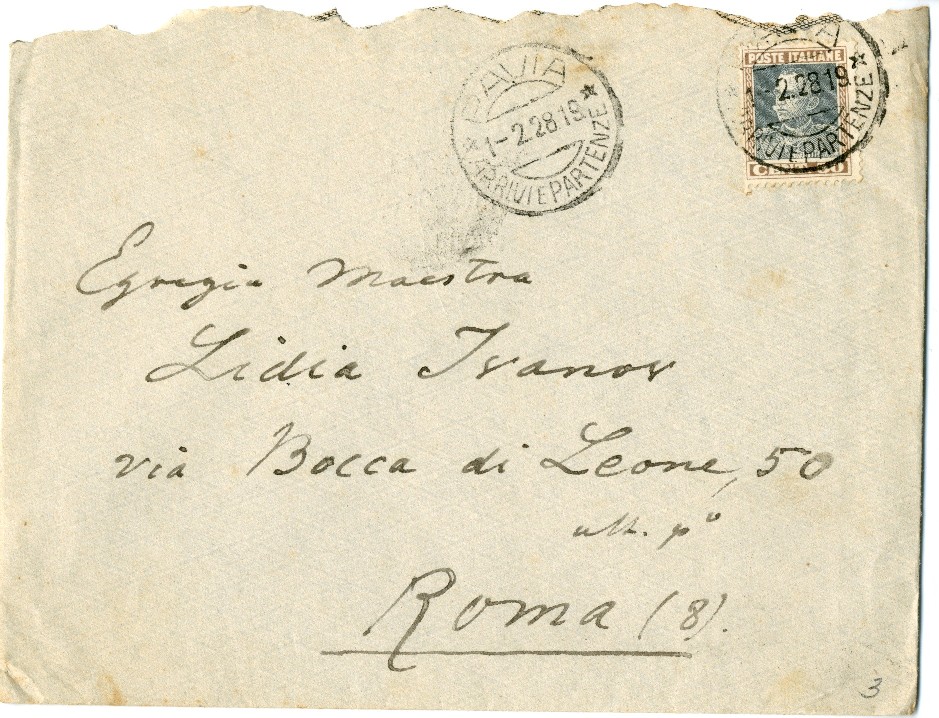 PAVIA
1-2.28 19
ARRIVI E PARTENZE
POSTE ITALIANE
1-2.28 19
ARRIVI E PARTENZE
Egregia Maestra
Lidia Ivanov
via Bocca di Leone, 50
ult. pº
Roma (8).
3